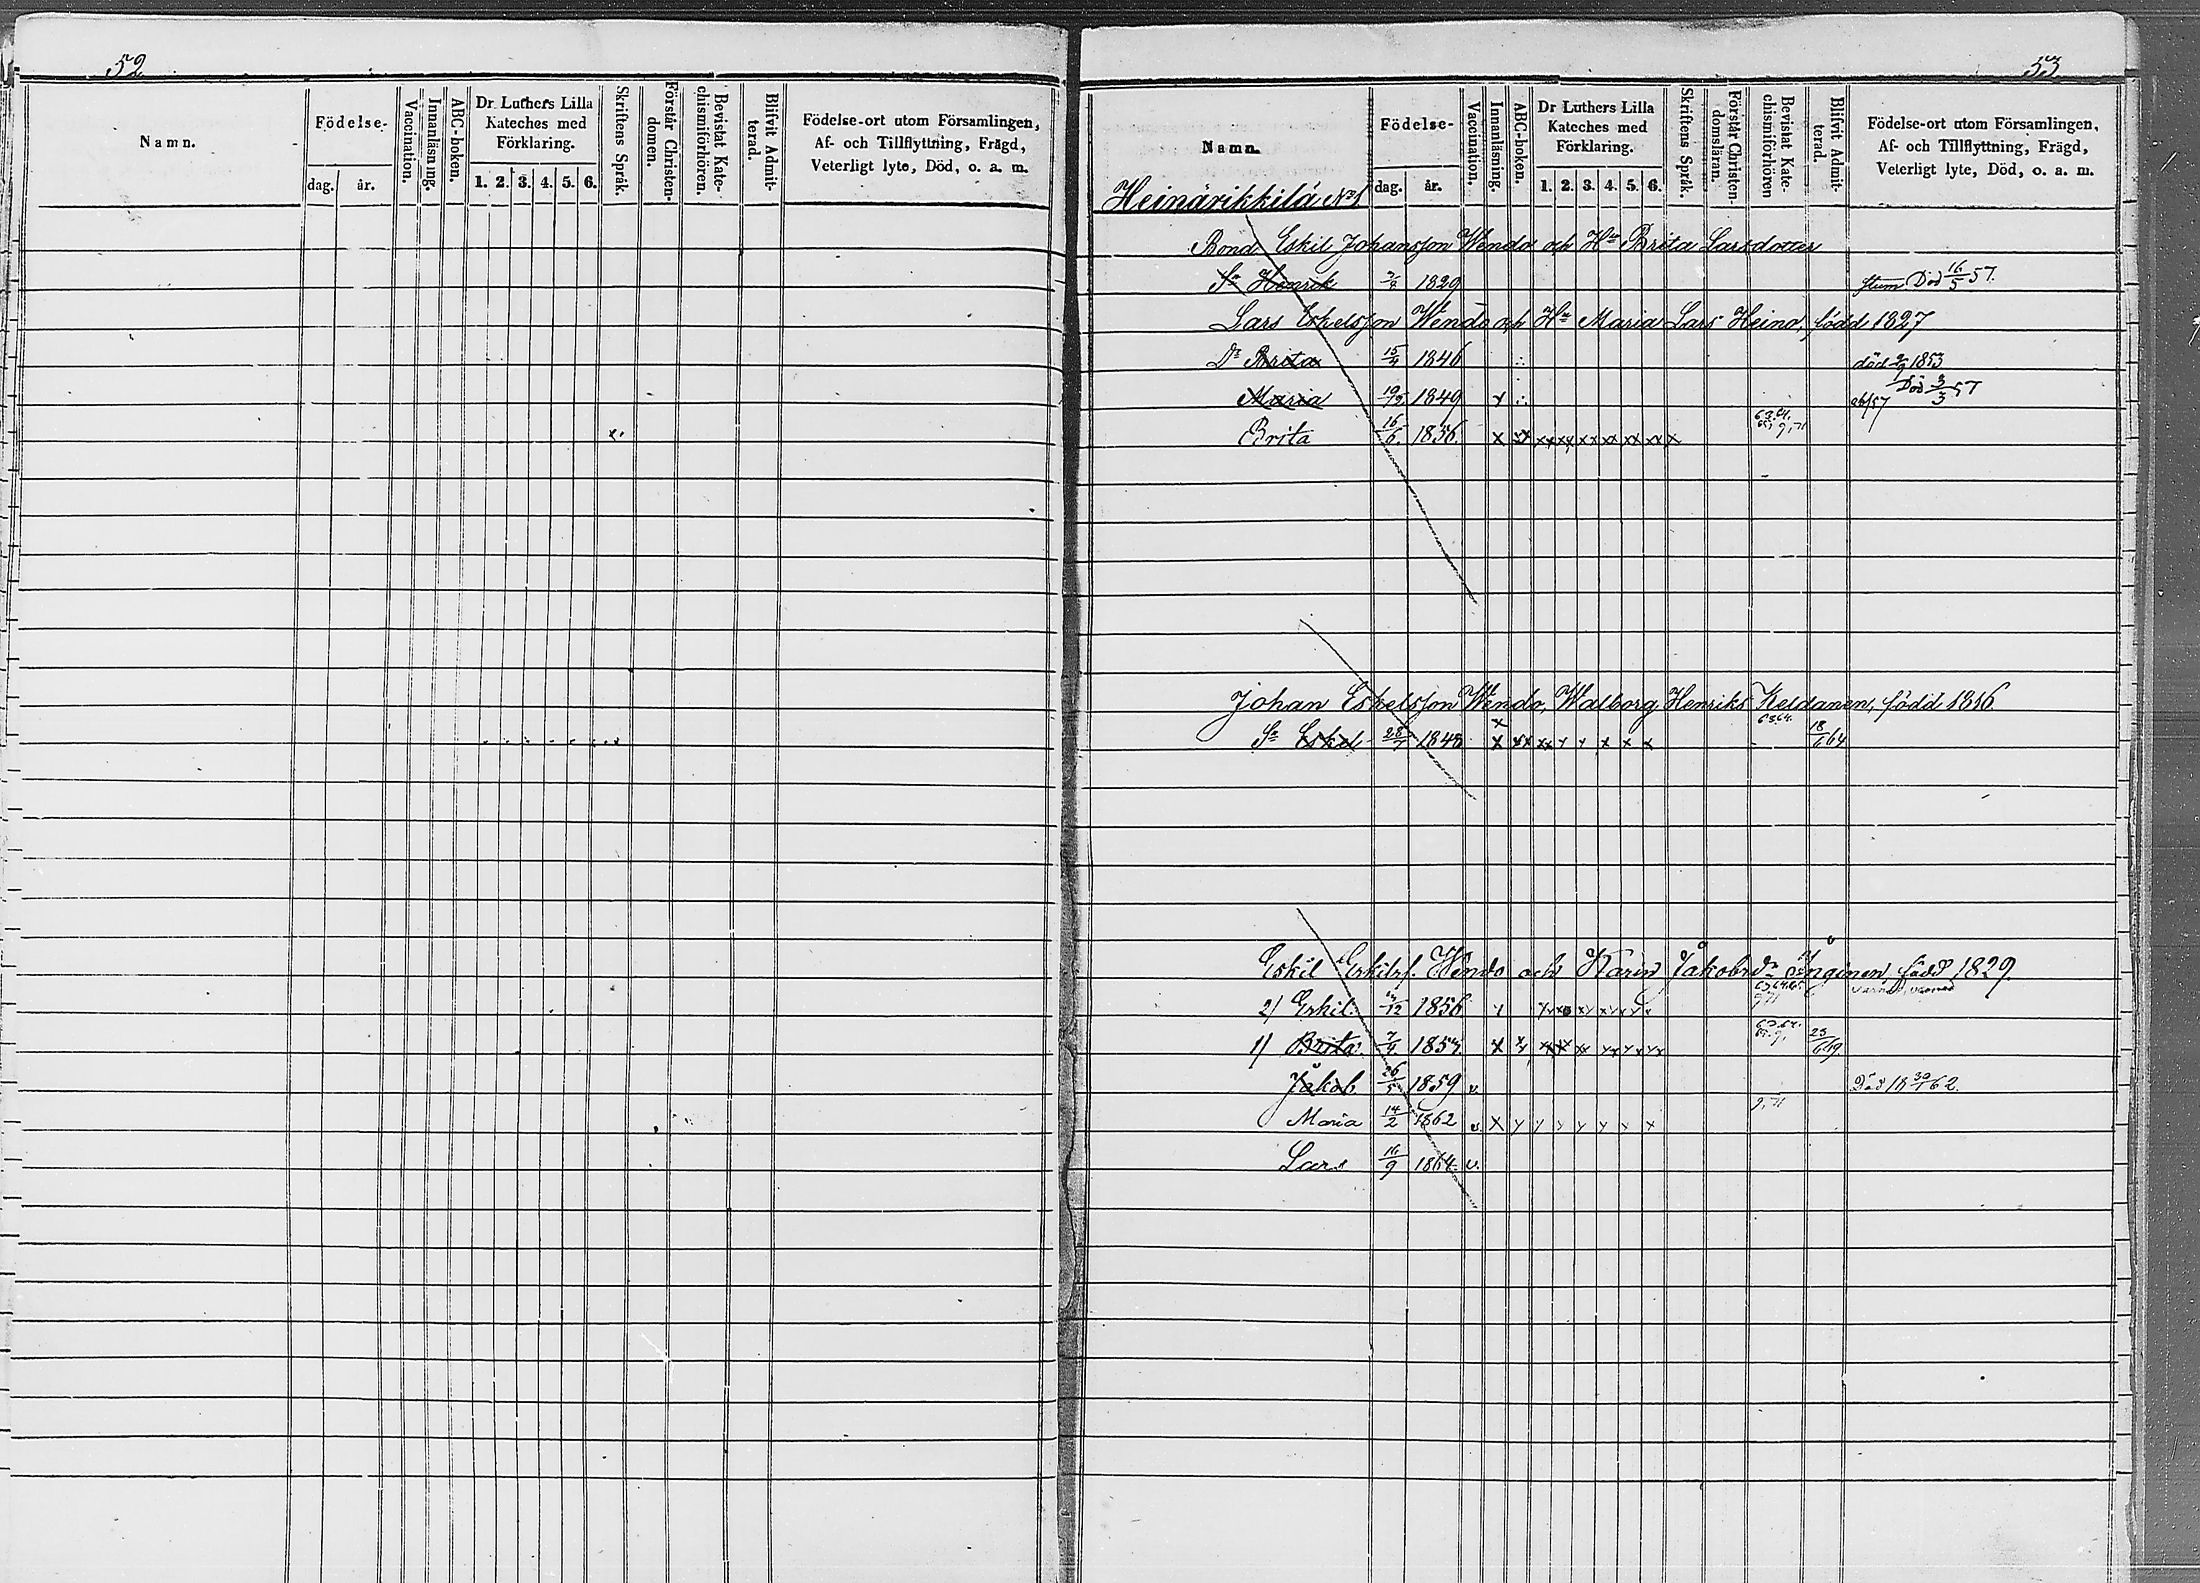 52
Namn.
Födelse-
dag. år.
Vaccination.
Innanläsning.
ABC-boken.
Dr. Luthers Lilla Kateches med Förklaring.
1. 2. 3. 4. 5. 6.
Skriftens Språk.
Förstår Christendomen.
Bevistat Katechismiförhören.
Blifvit Admitterad.
Födelse-ort utom Församlingen, Af- och Tillflyttning, Frägd, Veterligt lyte, Död, o. a. m.
53
Namn.
Födelse-
dag. år.
Vaccination.
Innanläsning.
ABC-boken.
Dr Luthers Lilla Kateches med Förklaring.
1. 2. 3. 4. 5. 6.
Skriftens Språk.
Förstår Christendomsläran.
Bevistat Katechismiförhören
Blifvit Admitterad.
Födelse-ort utom Församlingen, Af- och Tillflyttning, Frägd, Veterligt lyte, Död, o. a. m.
Heinärikkilä No 1
Bond. Eskil Johansson Wendo och Hu Brita Larsdotter
Sn Henrik 1829 stum Död 16/5 57.
Lars Eskelsson Wendo och Hu Maria Lars Heino, född 1827
Dr Brita 15/4 1846 död 1853
Maria 19/12 1849 x Död 3/3 57
Brita 16/6. 1856. x xx xx xx xx xx xx xx x
Johan Eskelsson Wendo, Walborg Henriks Keldanen, född 1816.
63.64.
Sn Eskel 28/7 1848 x xx xx x x x x x 18/6 64
Eskil Eskilss. Wendo och Karin Jakobsdr Inginen, född 1829.
2) Eskil. 1856
1) Brita. 7/4. 1854. 23/6 69.
Jakob. 26/5 1859 v. Död 18 30/1 62.
Maria 14/2 1862 v. x y y y y y y x
9, 71
Lars 16/9 1864. v.